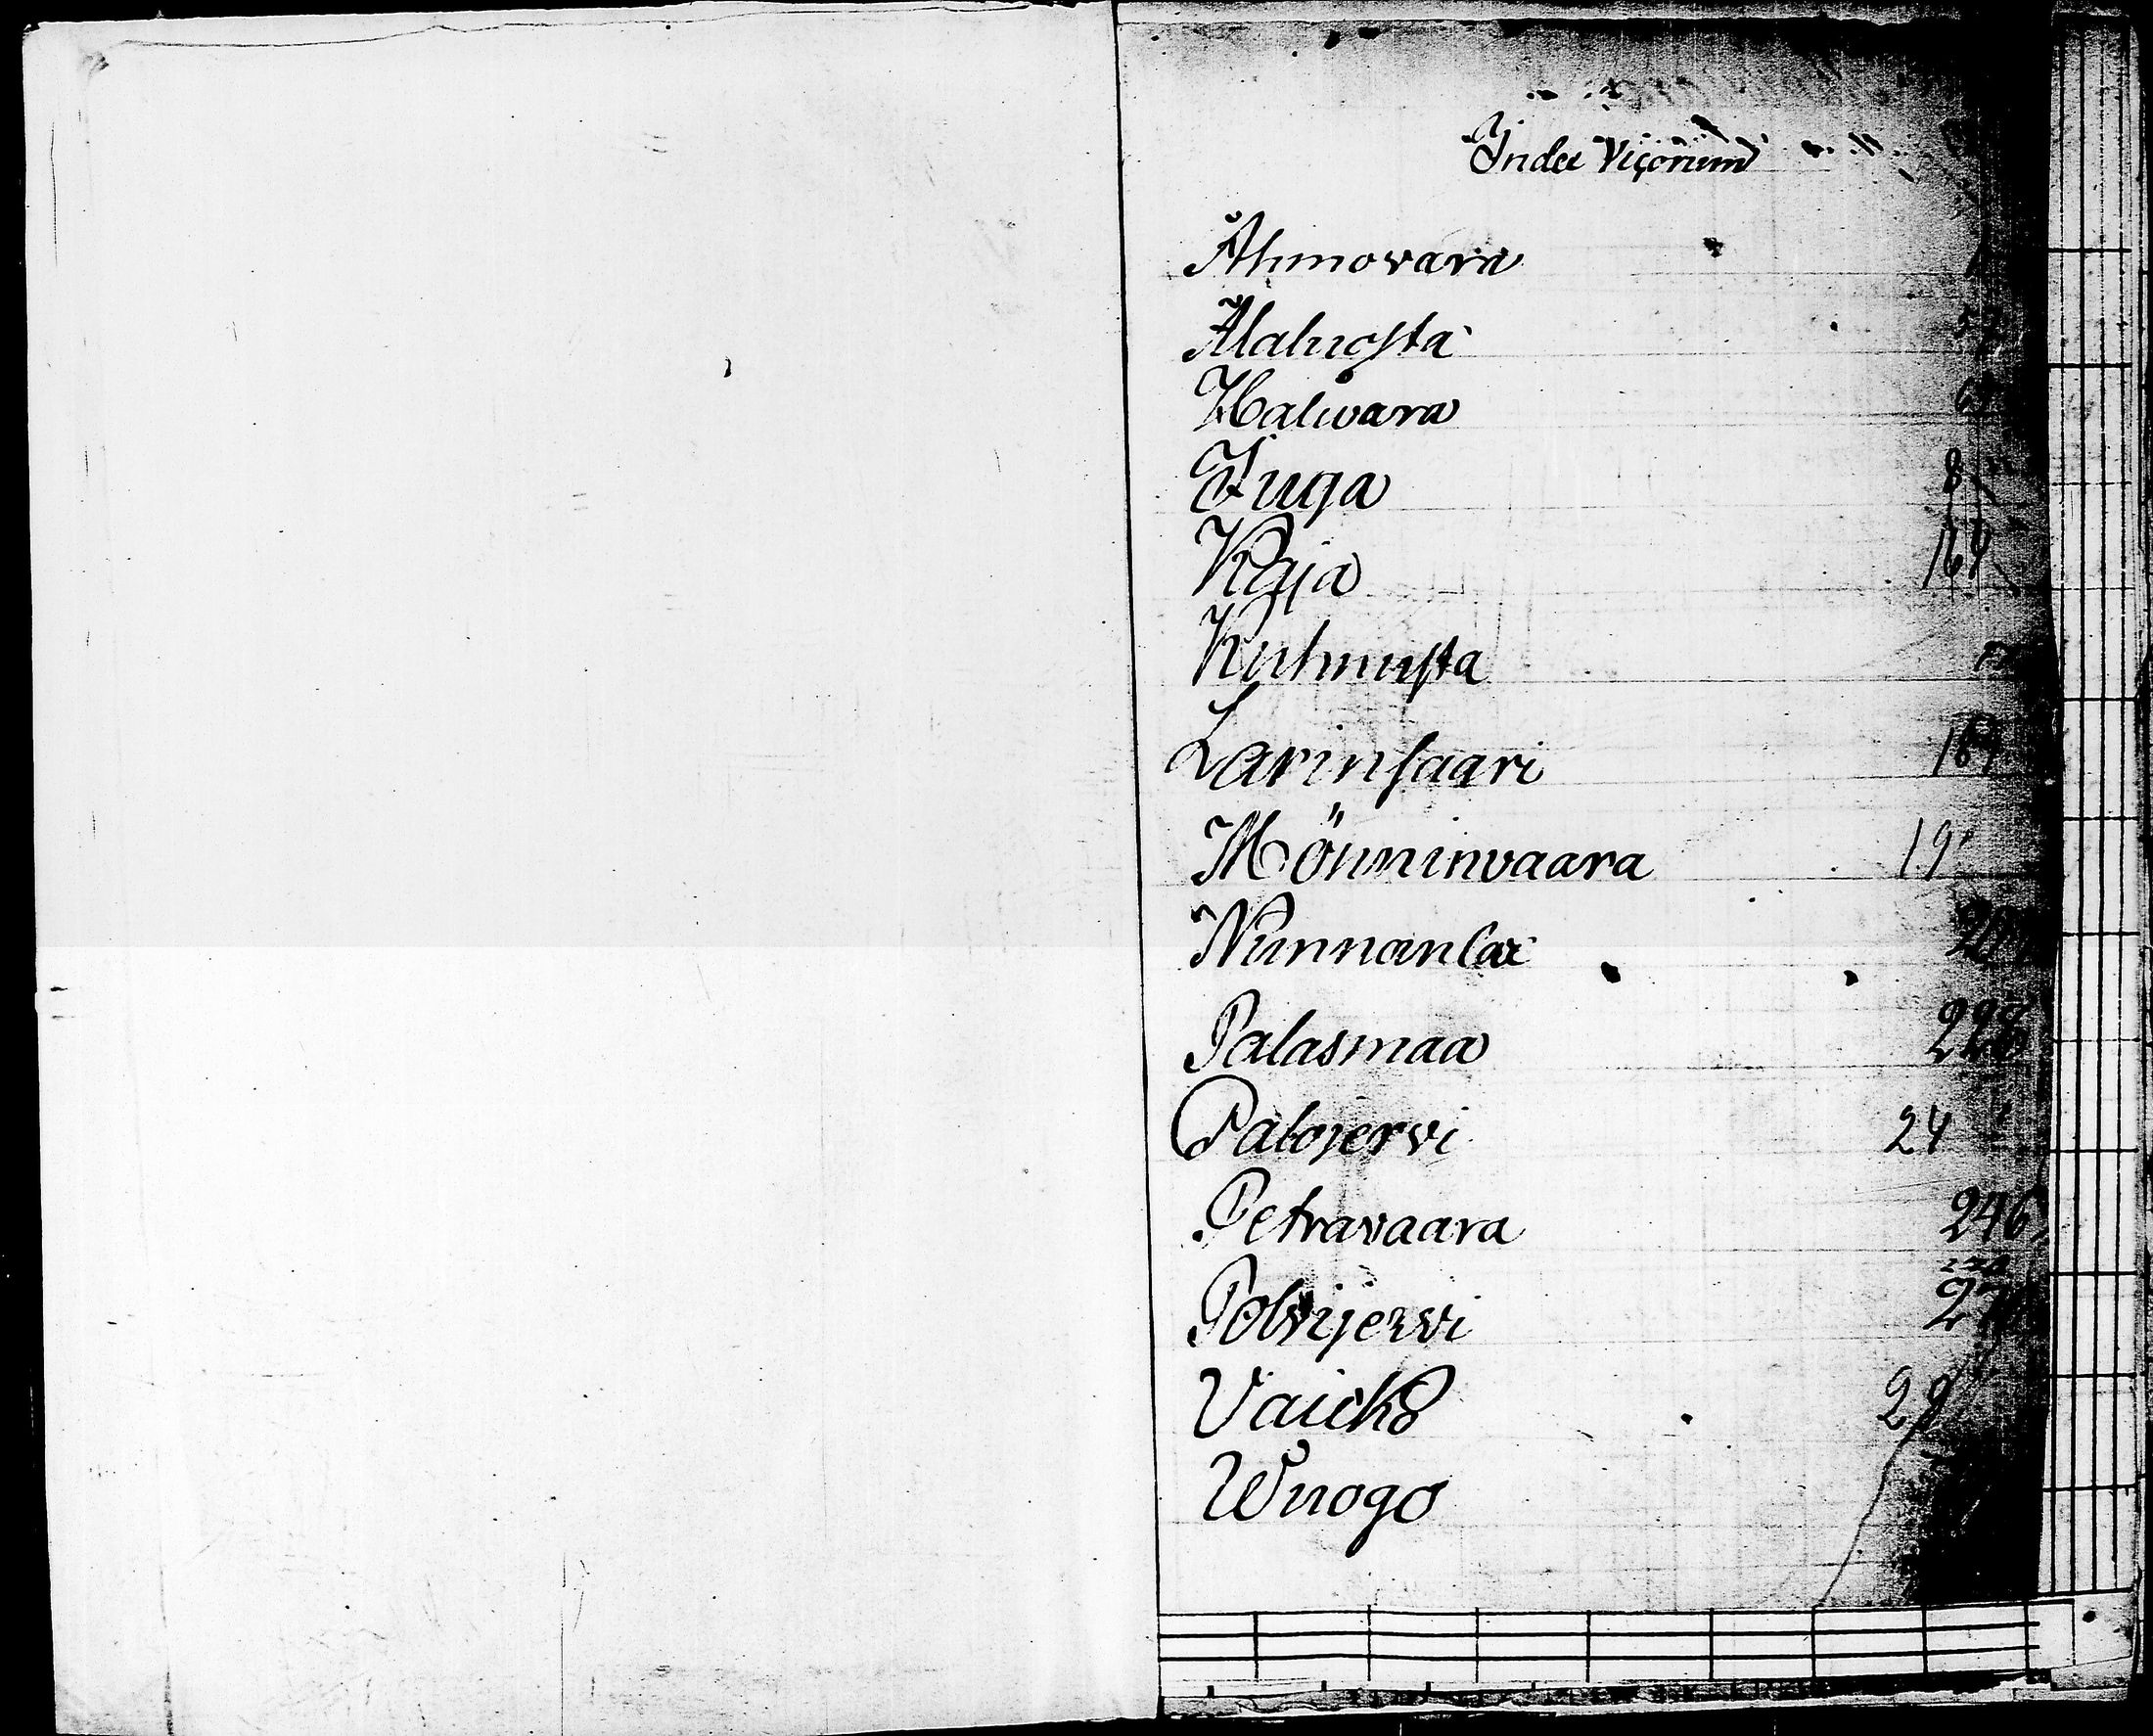 Index Vicorum
Ahmovara
Alaluosta
Halivara
Juga 8
Kaja 164
Kuhnusta
Larinsaari 189
Mönninvaara 19
Nunnanlax
Palasmaa 228
Palojervi 24
Petravaara 246
Polvijervi 27
Vaicko 29
Wuogo